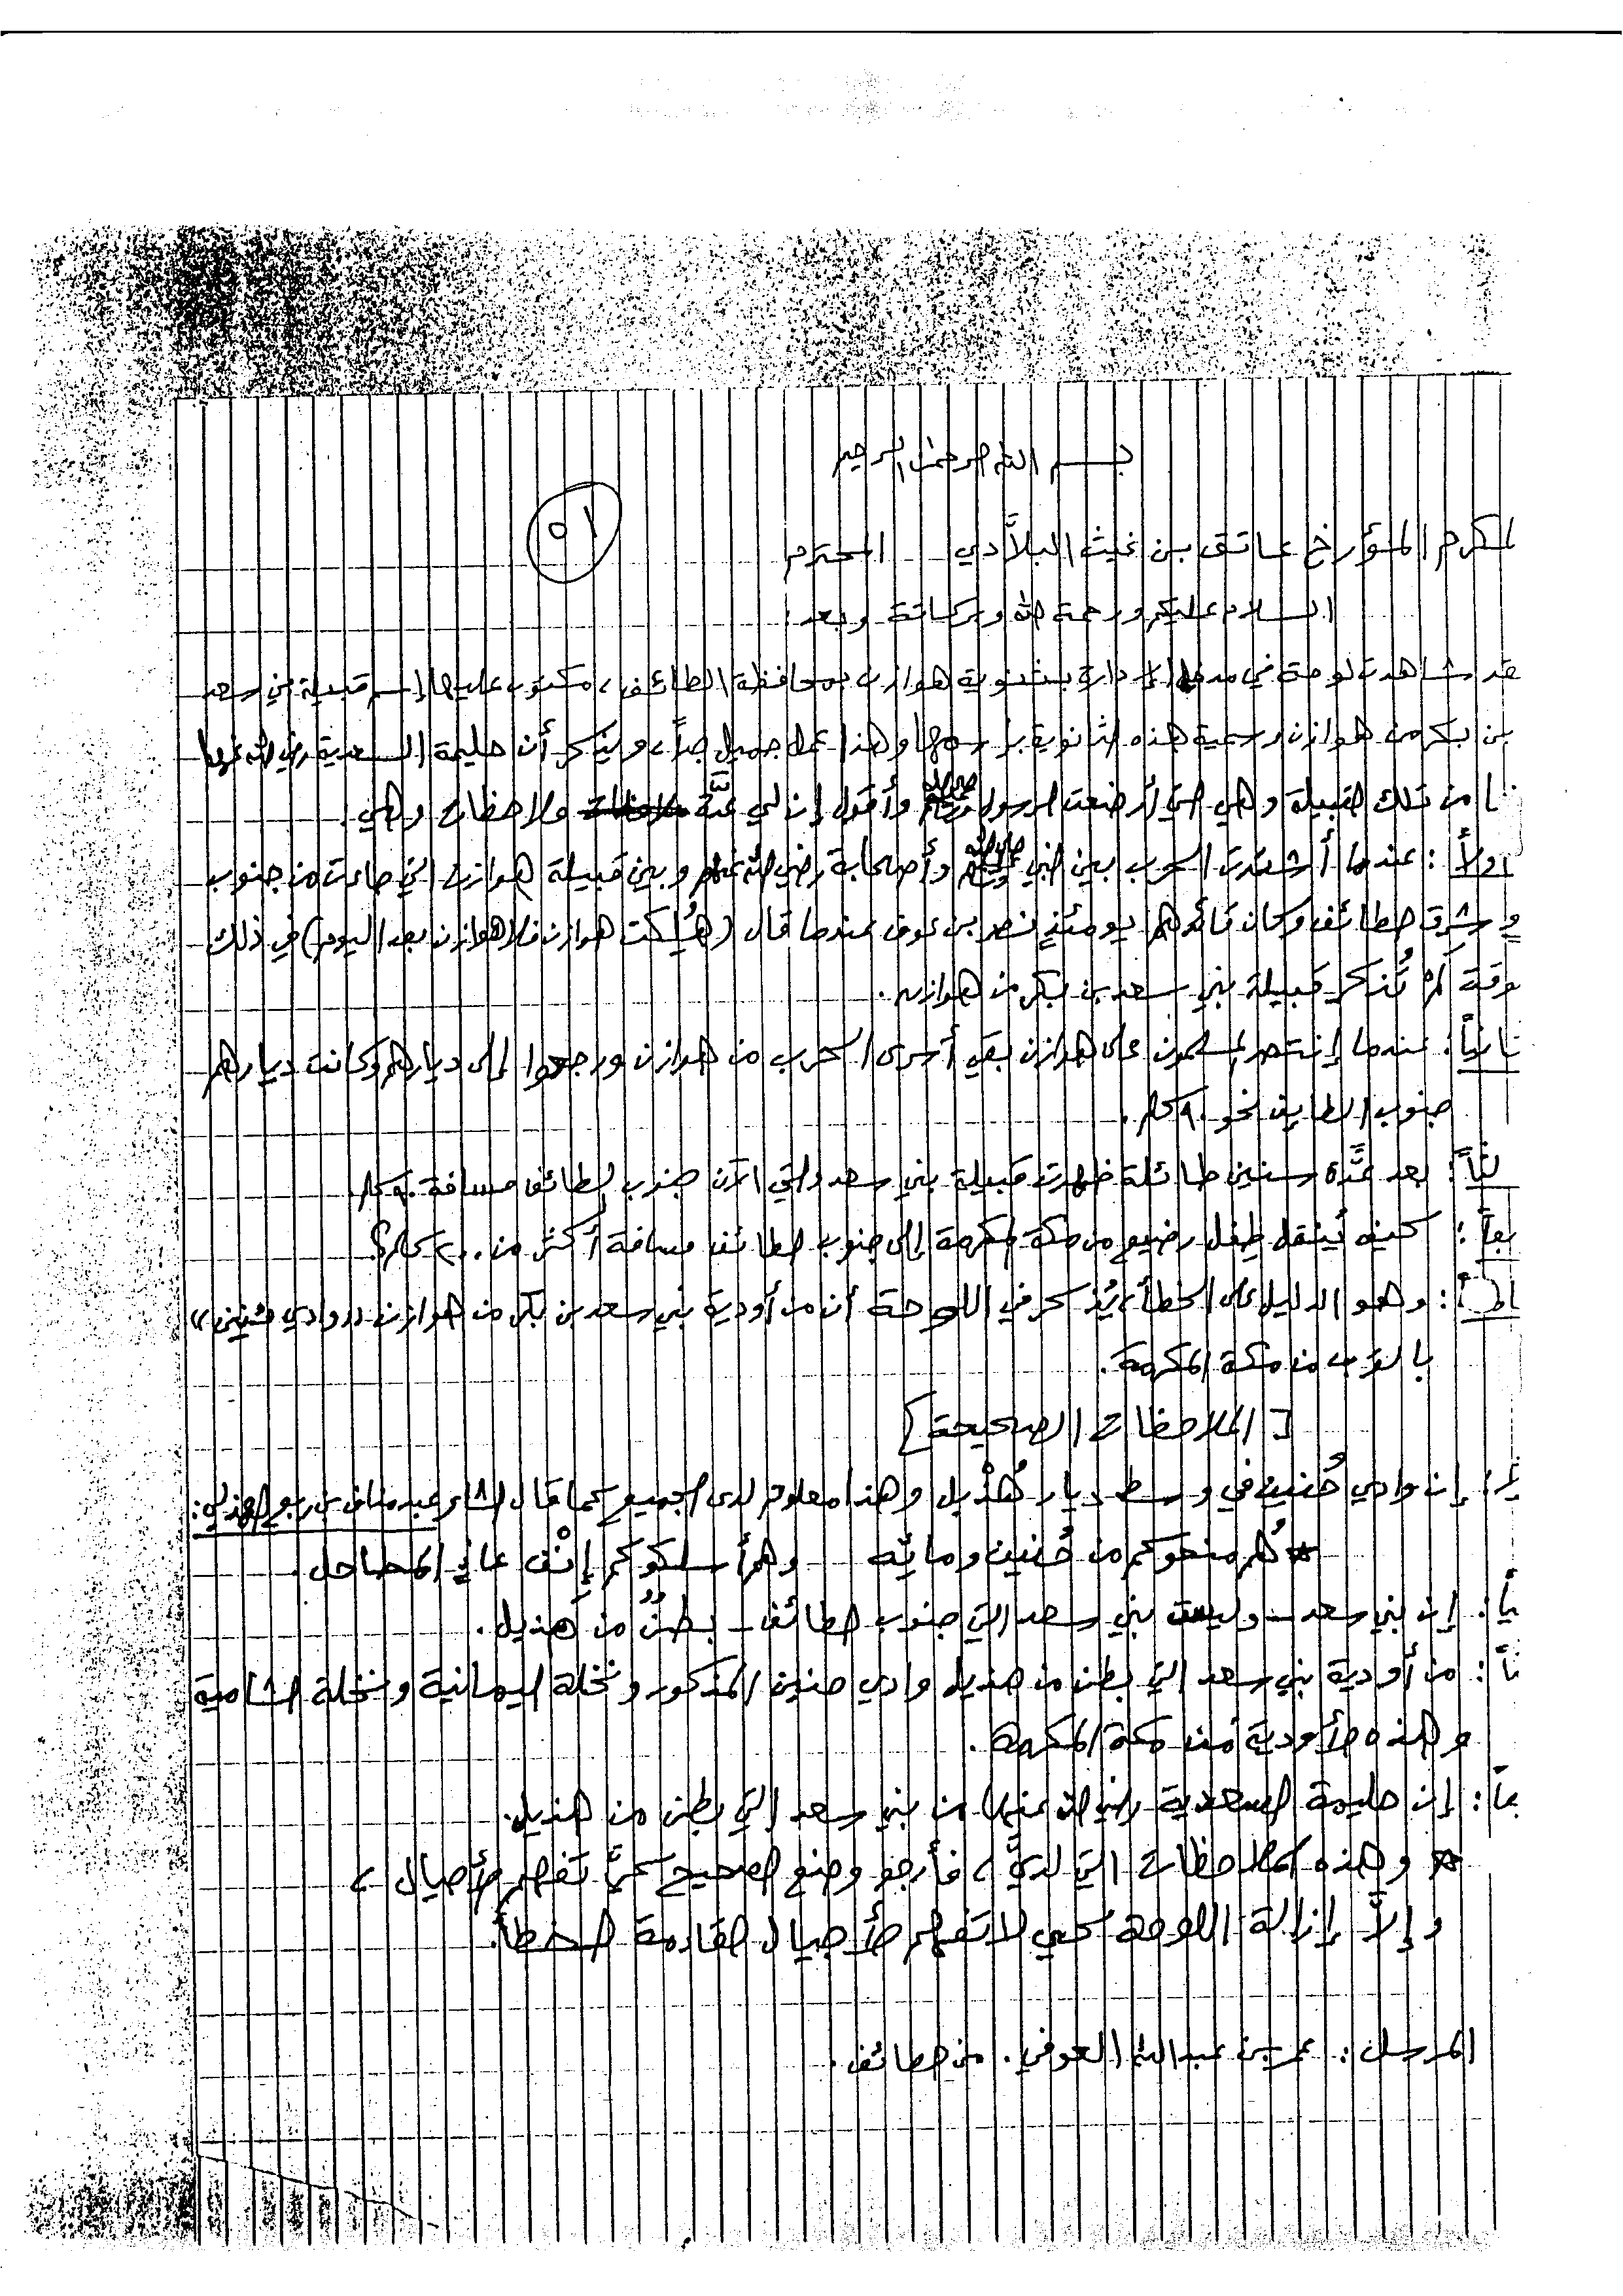 بسم الله الرحمن الرحيم
٥١
لمكرم المؤرخ عاتق بن غيث البلاَّدي المحترم
السلام عليكم ورحمة الله وبركاتة وبعد:
قد شاهدت لوحة في مدخل الإدارة بثنوية هوازن بمحافظة الطائف، مكتوب عليها إسم قبيلة بني سعد
بن بكر من هوازن وسمية هذه الثانوية بإسمها وهذا عمل جميل جداً، ويذكر أن حليمة السعدية رضي الله عنها
من تلك القبيلة وهي التي أرضعت الرسول ﷺ وأقول إن لي عدَّة ملاحظات وهي:
اولاً: عندما أشتدت الحرب بين النبي ﷺ وأصحابة رضي الله عنهم وبين قبيلة هوازن التي جاءت من جنوب
و شرق الطائف وكان قائدهم يومئذٍ نصر بن عوف عندما قال (هُلِكت هوازن فلا هوازن بعد اليوم) في ذلك
وقة لم تُذكر قبيلة بني سعد بن بكر من هوازن.
نانياً: عندما إنتصر المسلمون على هوازن بقي أسرى الحرب من هوازن ورجعوا إلى ديارهم وكانت ديارهم
جنوب الطايف نحو ٩٠ كلم.
لثاً: بعد عدَّة سنين طائلة ظهرت قبيلة بني سعد والتي الآن جنوب الطائف مسافة ٩٠ كلم
بعاً: كيف يُنقل طفل رضيع من مكة المكرمة إلى جنوب الطائف مسافة أكثر من ٢٠٠ كلم؟
وهو الدليل على الخطأ، يُذكر في اللوحة أن من أودية بني سعد بن بكر من هوازن ((وادي حنين))
بالقرب من مكة المكرمة.
[الملاحظات الصحيحة]
إن وادي حُنين في وسط ديار هُذيل وهذا معلوم لدى الجميع كما قال الشاعر عبد مناف بن ربع الهذلي:
* هُم منعوكم من حُنين ومائه وهم أسلكوكم إنْف عاذ المطاحل
ياً: إن بني سعد - وليست بني سعد التي جنوب الطائف - بطنٌ من هذيل.
ثاً: من أودية بني سعد التي بطن من هذيل وادي حنين المذكور ونخلة اليمانية ونخلة الشامية
وهذه الأودية من مكة المكرمة.
بعاً: إن حليمة السعدية رضي الله عنها من بني سعد التي بطن من هذيل.
* وهذه الملاحظات التي لديَّ، فأرجو وضع الصحيح كيَّ تفهم الأجيال،
وإلاَّ إزالة اللوحة كي لا تفهم الأجيال القادمة الخطأ.
المرسل: عمر بن عبدالله العوفي. من الطائف.